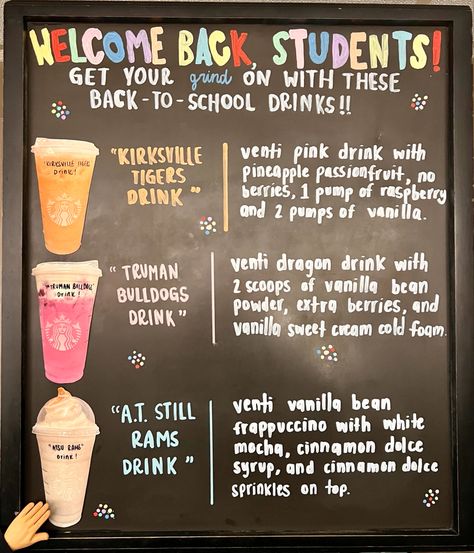 WELCOME BACK, STUDENTS!
GET YOUR grind ON WITH THESE
BACK-TO-SCHOOL DRINKS!!
"KIRKSVILLE TIGERS" DRINK!
"KIRKSVILLE
TIGERS
DRINK"
venti pink drink with
pineapple passionfruit, no
berries, 1 pump of raspberry
and 2 pumps of vanilla.
"TRUMAN BULLDOGS"
DRINK!
"TRUMAN
BULLDOGS
DRINK"
venti dragon drink with
2 scoops of vanilla bean
powder, extra berries, and
vanilla sweet cream cold foam.
"ATSU RAMS"
DRINK!
"A.T. STILL
RAMS
DRINK"
venti vanilla bean
frappuccino with white
mocha, cinnamon dolce
syrup, and cinnamon dolce
sprinkles on top.